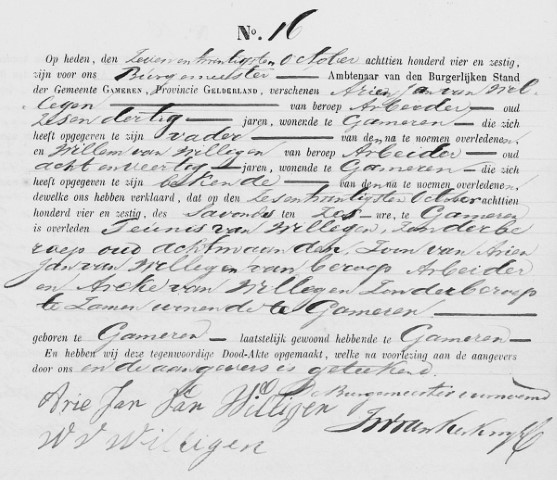 No. 16
Op heden, den Zevenentwintigsten October achttien honderd vier en zestig,
zijn voor ons Burgemeester Ambtenaar van den Burgerlijken Stand
der Gemeente GAMEREN, Provincie GELDERLAND, verschenen Arien Jan van Wil-
legen van beroep Arbeider oud
zesendertig jaren, wonende te Gameren die zich
heeft opgegeven te zijn vader van den na te noemen overledenen,
en Willem van Willigen van beroep Arbeider oud
achtenveertig jaren, wonende te Gameren die zich
heeft opgegeven te zijn bekende van den na te noemen overledenen,
dewelke ons hebben verklaard, dat op den zesentwintigsten October achttien
honderd vier en zestig, des Savonds ten zes ure, te Gameren
is overleden Teunis van Willegen, Zonder be
roep oud acht maanden, Zoon van Arien
Jan van Willegen van beroep Arbeider
en Areke van Willegen Zonder beroep
te Zamen wonende te Gameren
geboren te Gameren laatstelijk gewoond hebbende te Gameren
En hebben wij deze tegenwoordige Dood-Akte opgemaakt, welke na voorlezing aan de aangevers
door ons en de aangevers is geteekend.
Arie Jan Van Willigen De Burgemeester voornoemd
W V Willigen